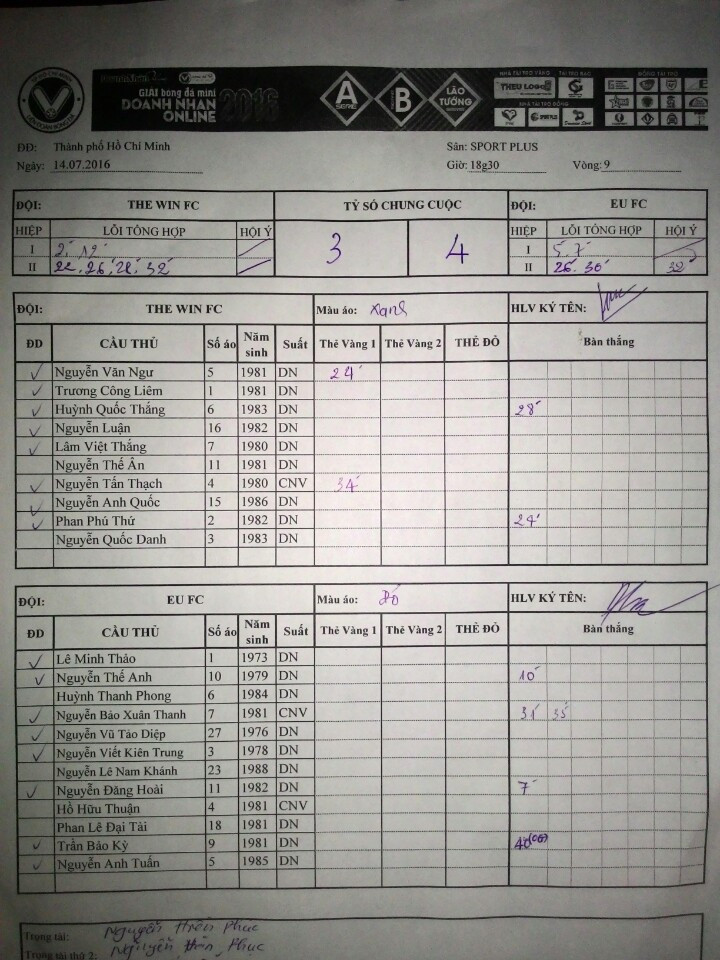 GIẢI bóng đá mini
DOANH NHÂN 2016
ONLINE
A SERIE B LÃO TƯỚNG
NHÀ TÀI TRỢ VÀNG TÀI TRỢ BẠC ĐỒNG TÀI TRỢ
THEU LOGO
NHÀ TÀI TRỢ ĐỒNG
ĐĐ: Thành phố Hồ Chí Minh Sân: SPORT PLUS
Ngày: 14.07.2016 Giờ: 18g30 Vòng: 9
ĐỘI: THE WIN FC TỶ SỐ CHUNG CUỘC ĐỘI: EU FC
HIỆP LỖI TỔNG HỢP HỘI Ý 3 4 HIỆP LỖI TỔNG HỢP HỘI Ý
I 2' 12' I 5' 7'
II 22' 26' 28' 32' II 26' 30' 32'
ĐỘI: THE WIN FC Màu áo: Xanh HLV KÝ TÊN:
ĐD CẦU THỦ Số áo Năm sinh Suất Thẻ Vàng 1 Thẻ Vàng 2 THẺ ĐỎ Bàn thắng
Nguyễn Văn Ngư 5 1981 DN 24'
Trương Công Liêm 1 1981 DN
Huỳnh Quốc Thắng 6 1983 DN 28'
Nguyễn Luận 16 1982 DN
Lâm Việt Thắng 7 1980 DN
Nguyễn Thế Ân 11 1981 DN
Nguyễn Tấn Thạch 4 1980 CNV 34'
Nguyễn Anh Quốc 15 1986 DN
Phan Phú Thứ 2 1982 DN 24'
Nguyễn Quốc Danh 3 1983 DN
ĐỘI: EU FC Màu áo: Đỏ HLV KÝ TÊN:
ĐD CẦU THỦ Số áo Năm sinh Suất Thẻ Vàng 1 Thẻ Vàng 2 THẺ ĐỎ Bàn thắng
Lê Minh Thảo 1 1973 DN
Nguyễn Thế Anh 10 1979 DN 10'
Huỳnh Thanh Phong 6 1984 DN
Nguyễn Bảo Xuân Thanh 7 1981 CNV 31' 35'
Nguyễn Vũ Tảo Diệp 27 1976 DN
Nguyễn Viết Kiên Trung 3 1978 DN
Nguyễn Lê Nam Khánh 23 1988 DN
Nguyễn Đăng Hoài 11 1982 DN 7'
Hồ Hữu Thuận 4 1981 CNV
Phan Lê Đại Tài 18 1981 DN
Trần Bảo Kỳ 9 1981 DN
Nguyễn Anh Tuấn 5 1985 DN
Trọng tài: Nguyễn Phúc
Trọng tài thứ 2: Nguyễn Phúc